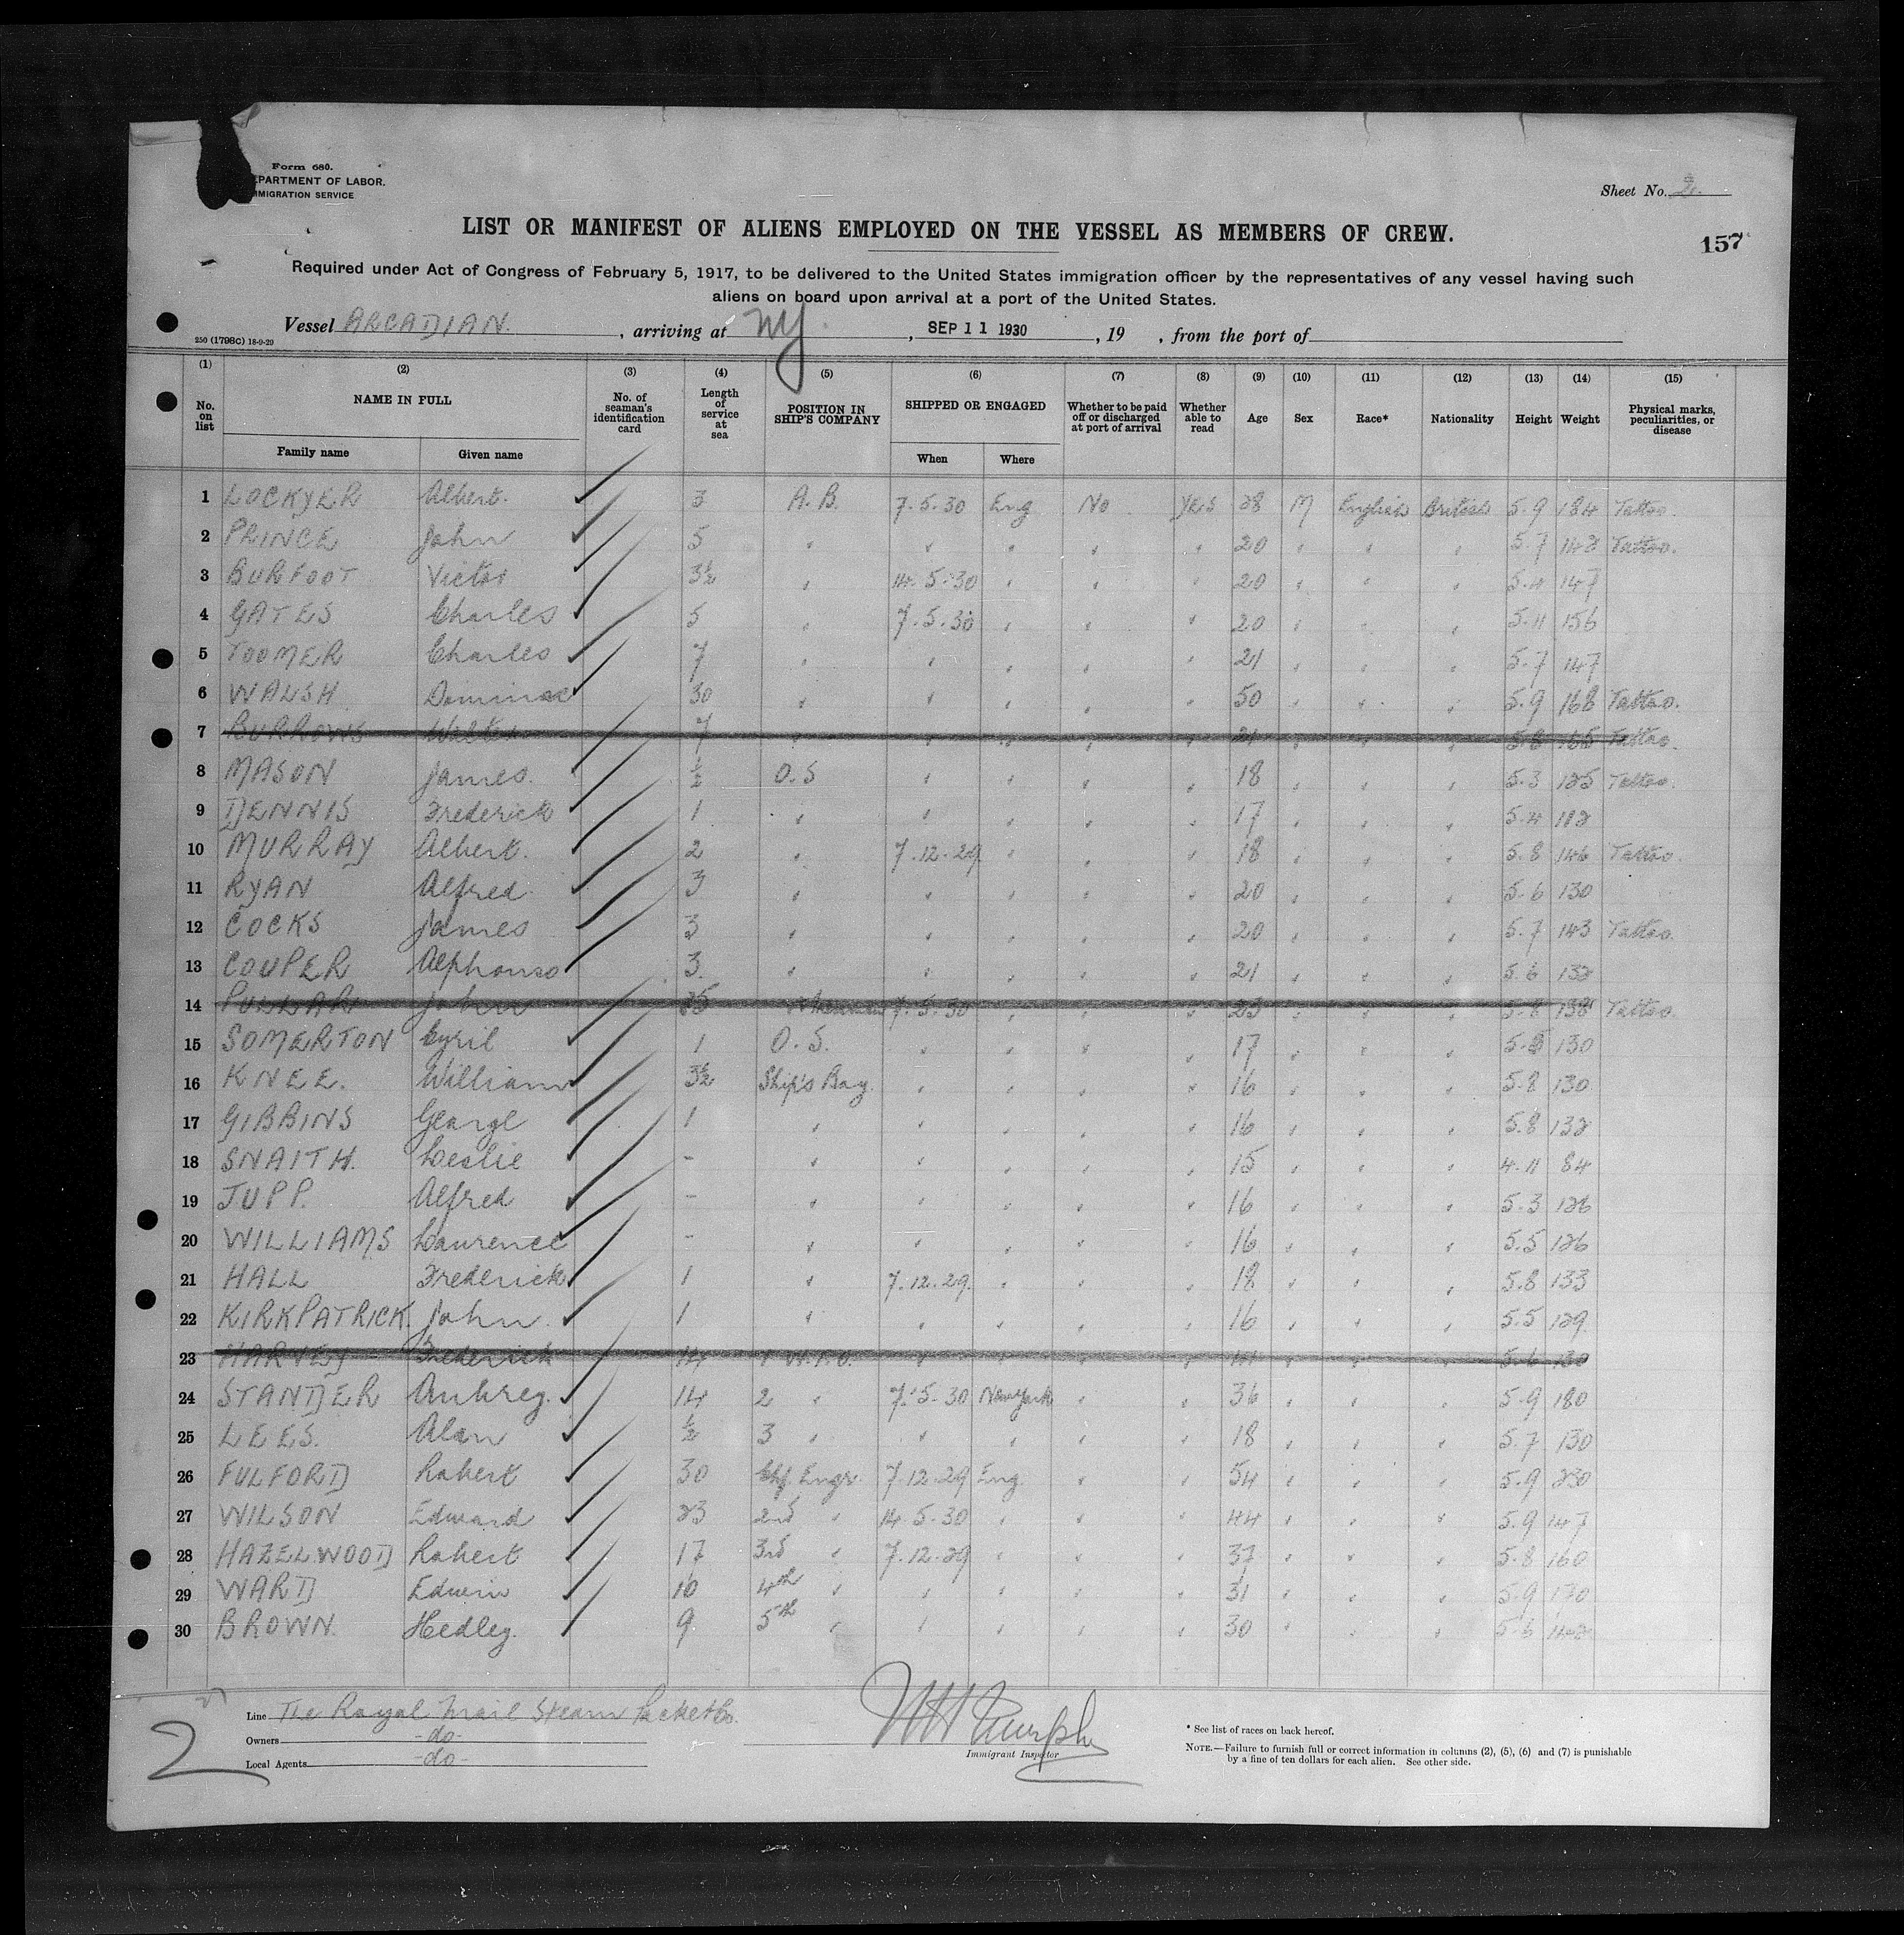 Form 680.
EPARTMENT OF LABOR.
MMIGRATION SERVICE
Sheet No. 2.
157
LIST OR MANIFEST OF ALIENS EMPLOYED ON THE VESSEL AS MEMBERS OF CREW.
Required under Act of Congress of February 5, 1917, to be delivered to the United States immigration officer by the representatives of any vessel having such
aliens on board upon arrival at a port of the United States.
Vessel ARCADIAN. , arriving at NY. , SEP 11 1930 , 19 , from the port of
250 (1798C) 18-9-29
(1) (2) (3) (4) (5) (6) (7) (8) (9) (10) (11) (12) (13) (14) (15)
No. on list NAME IN FULL No. of seaman's identification card Length of service at sea POSITION IN SHIP'S COMPANY SHIPPED OR ENGAGED Whether to be paid off or discharged at port of arrival Whether able to read Age Sex Race* Nationality Height Weight Physical marks, peculiarities, or disease
Family name Given name When Where
1 LOCKYER Albert. 3 A.B. 7.5.30 Eng No Yes 28 M English British 5.9 184 Tattoo.
2 PRINCE John 5 " " " " " 20 " " " 5.7 142 Tattoo.
3 BURFOOT Victor 3½ " 14.5.30 " " " 20 " " " 5.4 147
4 GATES Charles 5 " 7.5.30 " " " 20 " " " 5.11 156
5 TOOMER Charles 7 " " " " " 21 " " " 5.7 147
6 WALSH Dominac 30 " " " " " 50 " " " 5.9 168 Tattoo.
7 BURROWS Walter 7 " " " " " 21 " " " 5.8 165 Tattoo.
8 MASON James. ½ O.S " " " " 18 " " " 5.3 125 Tattoo.
9 DENNIS Frederick 1 " " " " " 17 " " " 5.4 112
10 MURRAY Albert. 2 " 7.12.29 " " " 18 " " " 5.8 146 Tattoo.
11 RYAN Alfred 3 " " " " " 20 " " " 5.6 130
12 COCKS James 3 " " " " " 20 " " " 5.7 143 Tattoo.
13 COUPER Alphonso 3 " " " " " 21 " " " 5.6 132
14 PULLAR John 7.5.30 " " " 23 " " " 5.8 138 Tattoo
15 SOMERTON Cyril 1 O.S. " " " " 17 " " " 130
16 KNEE. William 3½ Ship's Boy. " " " " 16 " " " 5.8 130
17 GIBBINS George 1 " " " " " 16 " " " 5.8 132
18 SNAITH. Leslie - " " " " " 15 " " " 4.11 84
19 JUPP. Alfred - " " " " " 16 " " " 5.3 126
20 WILLIAMS Laurence - " " " " " 16 " " " 5.5 126
21 HALL Frederick 1 " 7.12.29. " " " 18 " " " 5.8 133
22 KIRKPATRICK. John. 1 " " " " " 16 " " " 5.5 129
23 HARVEY Frederick 14 1 W.T.O. " " " " 44 " " " 5.6 130
24 STANDER Aubrey. 14 2 " 7.5.30 New York " " 36 " " " 5.9 180
25 LEES. Alan ½ 3 " " " " " 18 " " " 5.7 130
26 FULFORD Robert 30 Chf Engr. 7.12.29 Eng. " " 54 " " " 5.9 230
27 WILSON Edward 23 2nd " 14.5.30 " " " 44 " " " 5.9 147
28 HAZELWOOD Robert 17 3rd " 7.12.29 " " " 37 " " " 5.8 160
29 WARD Edwin 10 4th " " " " " 31 " " " 5.9 170
30 BROWN. Hedley. 9 5th " " " " " 30 " " " 5.6 142
2
Line The Royal Mail Steam Packet Co.
Owners -do-
Local Agents -do-
Murphy
Immigrant Inspector
* See list of races on back hereof.
NOTE.—Failure to furnish full or correct information in columns (2), (5), (6) and (7) is punishable
by a fine of ten dollars for each alien. See other side.